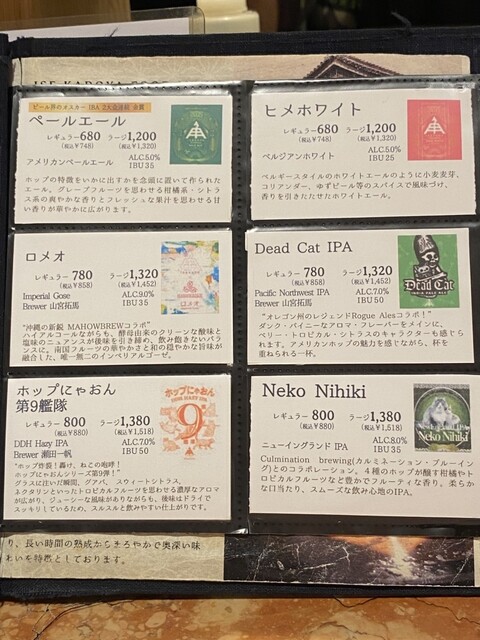 ISE KADOYA
ビール界のオスカー IBA 2大会連続 金賞
ペールエール
レギュラー 680 ラージ 1,200
(税込￥748) (税込￥1,320)
アメリカンペールエール
ALC5.0%
IBU 35
ホップの特徴をいかに出すかを念頭に置いて作られた
エール。グレープフルーツを思わせる柑橘系・シトラ
ス系の爽やかな香りとフレッシュな果汁を思わせる甘
い香りが華やかに広がります。
ヒメホワイト
レギュラー 680 ラージ 1,200
(税込￥748) (税込￥1,320)
ベルジアンホワイト
ALC5.0%
IBU 25
ベルギースタイルのホワイトエールのように小麦麦芽、
コリアンダー、ゆずピール等のスパイスで風味づけ、
香りを引きたたせたホワイトエール。
ロメオ
レギュラー 780 ラージ 1,320
(税込￥858) (税込￥1,452)
Imperial Gose
Brewer 山宮拓馬
ALC9.0%
IBU 35
"沖縄の新鋭 MAHOWBREWコラボ"
ハイアルコールながらも、酵母由来のクリーンな酸味と
塩味のニュアンスが後味を引き締め、飲み飽きないバ
ランスに。南国フルーツの華やかさと和の穏やかな旨味が
融合した、唯一無二のインペリアルゴーゼ。
Dead Cat IPA
レギュラー 780 ラージ 1,320
(税込￥858) (税込￥1,452)
Pacific Northwest IPA
Brewer 山宮拓馬
ALC.7.0%
IBU 50
Dead Cat
"オレゴン州のレジェンドRogue Alesコラボ！"
ダンク・パイニーなアロマ・フレーバーをメインに、
ベリー・トロピカル・シトラスのキャラクターも感じら
れます。アメリカンホップの魅力を感じながら、杯を
重ねられる一杯。
ホップにゃおん
第9艦隊
レギュラー 800 ラージ 1,380
(税込￥880) (税込￥1,518)
DDH Hazy IPA
Brewer 瀬田一帆
ALC.7.0%
IBU 50
ホップにゃおん
9
"ホップ炸裂！轟け、ねこの咆哮！
ホップにゃおんシリーズ第9弾！"
グラスに注いだ瞬間、グアバ、スウィートシトラス、
ネクタリンといったトロピカルフルーツを思わせる濃厚なアロ
マが広がり、ジューシーな風味がありながらも、後味はドライで
スッキリしているため、スルスルと飲みやすい仕上がりです。
Neko Nihiki
レギュラー 800 ラージ 1,380
(税込￥880) (税込￥1,518)
ニューイングランド IPA
ALC.8.0%
IBU 35
Neko Nihiki
Culmination brewing(カルミネーション・ブルーイン
グ)とのコラボレーション。4種のホップが醸す柑橘やト
ロピカルフルーツなど豊かでフルーティな香り。柔らか
な口当たり、スムーズな飲み心地のIPA。
り、長い時間の熟成からまろやかで奥深い味
わいを特徴としております。